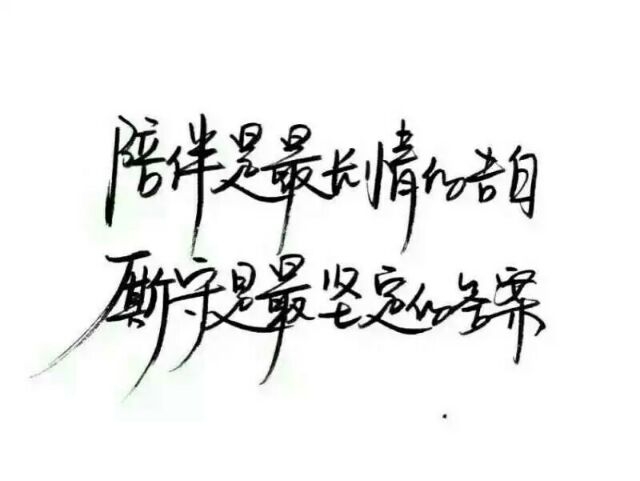 陪伴是最长情的告白
厮守是最坚定的答案